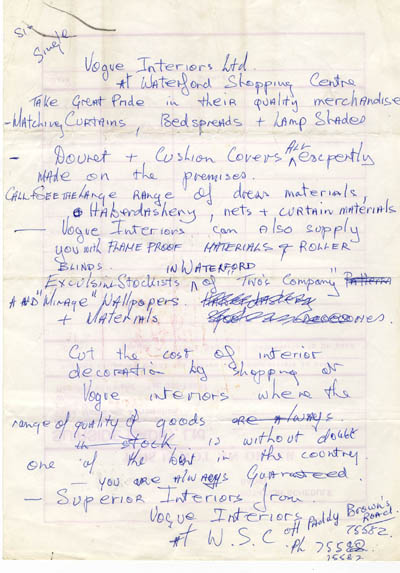 Six
Single
Vogue Interiors Ltd.
At Waterford Shopping Centre
Take Great Pride in their quality merchandise
- Matching Curtains, Bedspreads + Lamp Shades
- Douvet + Cushion Covers ALL expertly
made on the premises.
Call & see the large range of dress materials,
Haberdashery, nets + curtain materials
- Vogue Interiors can also supply
you with FLAME PROOF MATERIALS & ROLLER
BLINDS.
Exculsiv Stockists IN WATERFORD of "Two's Company" Pattern
AND "Mirage" Wallpapers.
+ Materials
Cut the cost of interior
decoration by shopping at
Vogue interiors where the
range of quality of goods are always
in stock is without doubt
one of the best in the country.
- you are always Guaranteed.
- Superior Interiors from
Vogue Interiors
At W.S.C off Paddy Brown's Road
75582.
Ph 75582
75582